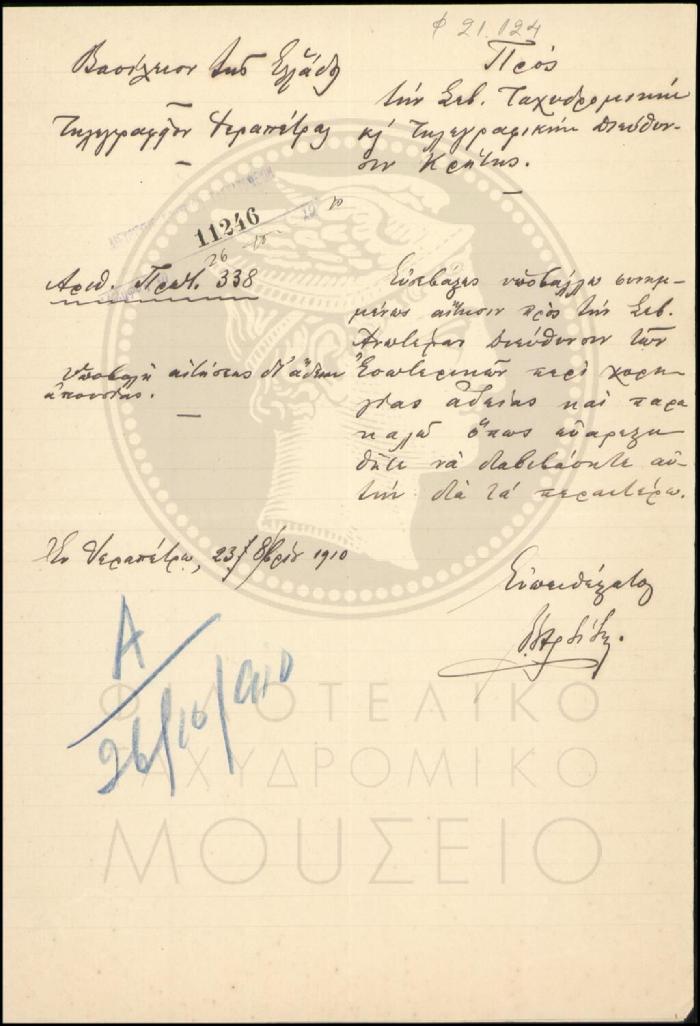 φ 21.124
Βασίλειον της Ελλάδος
Τηλεγραφείον Ιεραπέτρας
Πρός
την Σεβ. Ταχυδρομικήν
κ̣ Τηλεγραφικήν Διεύθυν-
σιν Κρήτης.
11246
26 10 10
Αριθ. Πρωτ. 338
Υποβολή αιτήσεως δι' άδειαν
απουσίας.
Ευσεβάστως υποβάλλω συνημ-
μένως αίτησιν πρός την Σεβ.
Ανωτέραν Διεύθυνσιν των
Εσωτερικών περί χορη-
γίας αδείας και παρα
καλώ όπως ευαρεστη
θήτε να διαβιβάσητε αυ-
τήν διά τα περαιτέρω.
Εν Ιεραπέτρα, 23 8βρίου 1910
Ευπειθέστατος
Α
26/10/910
ΦΙΛΟΤΕΛΙΚΟ
ΤΑΧΥΔΡΟΜΙΚΟ
ΜΟΥΣΕΙΟ